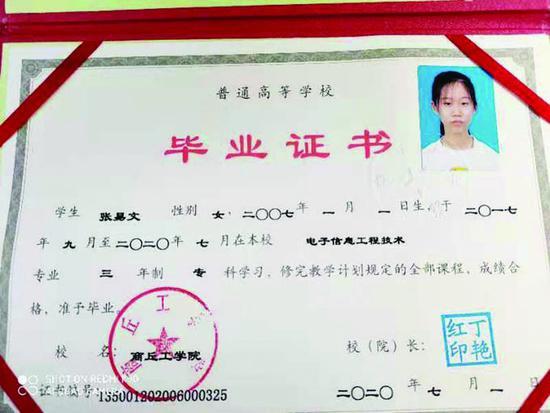 普通高等学校
毕业证书
学生 张易文 性别 女,二〇〇七年 一 月 一 日生,于 二〇一七
年 九 月至二〇二〇年 七 月在本校 电子信息工程技术
专业 三 年制 专 科学习,修完教学计划规定的全部课程,成绩合
格,准予毕业。
丘工
校 名: 商丘工学院 校(院)长:
丁艳
红印
证书编号:135001202006000325 二〇二〇年 七 月 一
SHOT ON REDMI